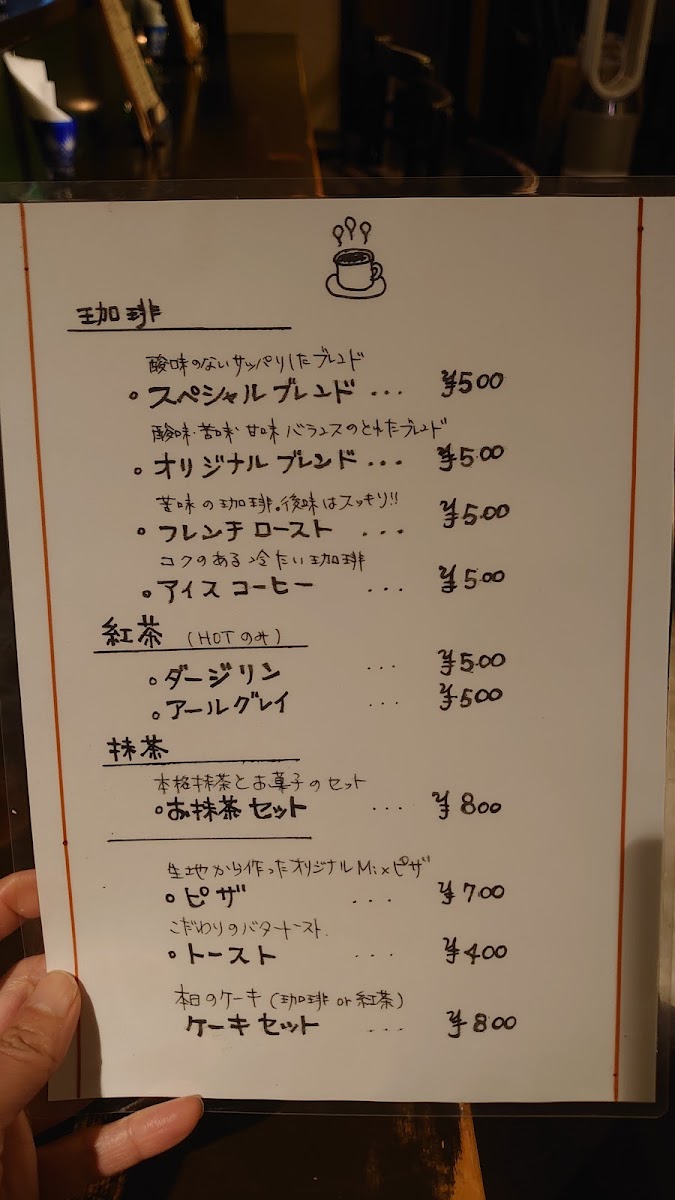 珈琲
酸味のないサッパリしたブレンド
。スペシャルブレンド ... ¥500
酸味・苦味・甘味 バランスのとれたブレンド
。オリジナルブレンド ... ¥500
苦味の珈琲。後味はスッキリ!!
。フレンチロースト ... ¥500
コクのある冷たい珈琲
。アイスコーヒー ... ¥500
紅茶 (HOTのみ)
。ダージリン ... ¥500
。アールグレイ ... ¥500
抹茶
本格抹茶とお菓子のセット
。お抹茶セット ... ¥800
生地から作ったオリジナルMixピザ
。ピザ ... ¥700
こだわりのバタートースト
。トースト ... ¥400
本日のケーキ(珈琲or紅茶)
ケーキセット ... ¥800